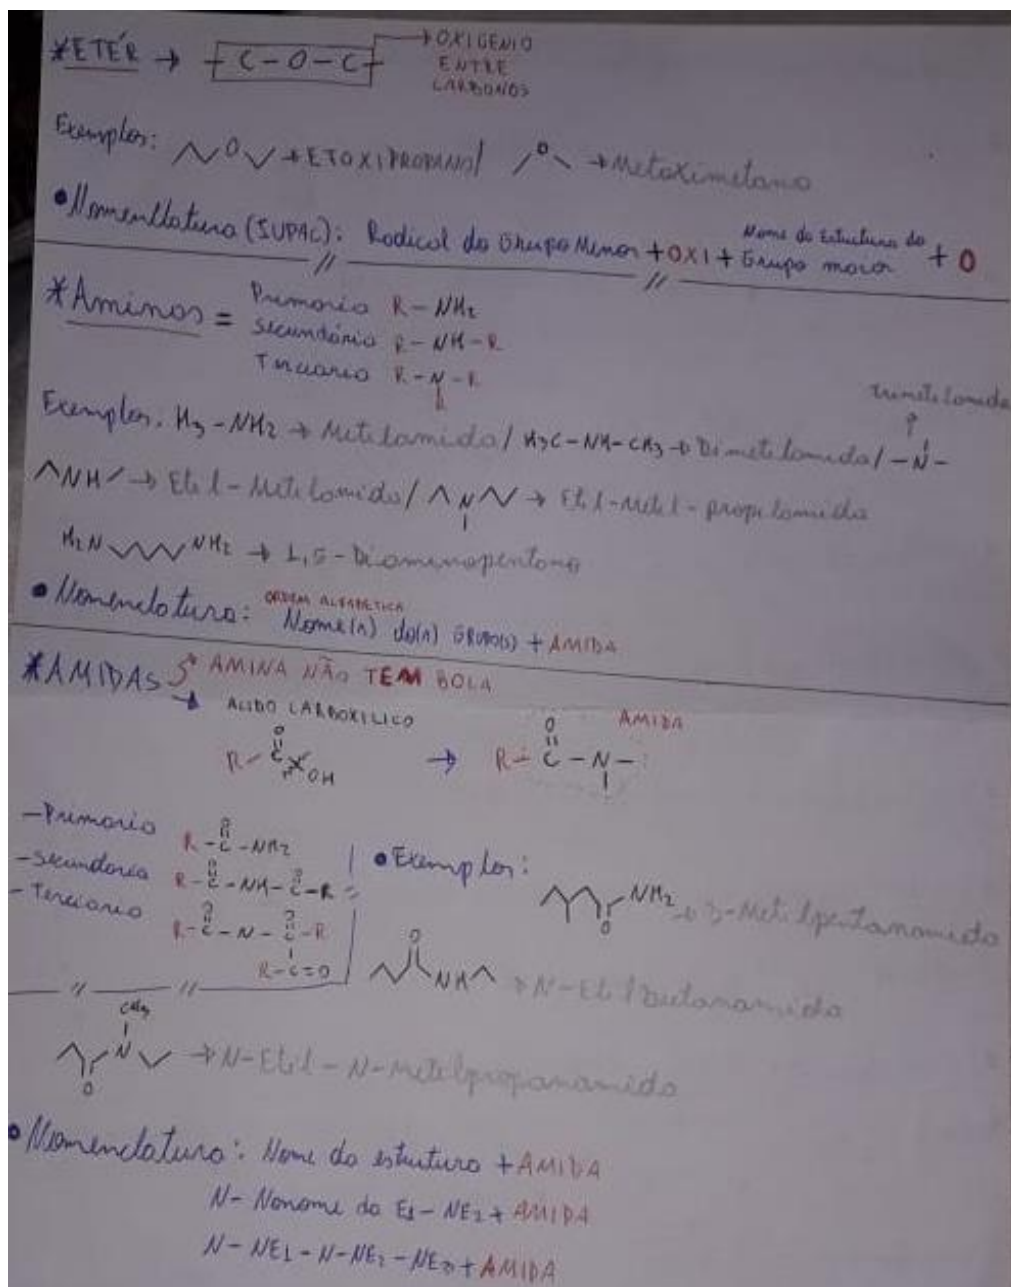 *ETÉR → C-O-C → OXIGENIO
ENTRE
CARBONOS
Exemplos: O → ETOXIPROPANO / O → Metoximetano
• Nomenllatura (IUPAC): Radical do Grupo Menor + OXI + Nome da Estrutura do Grupo maior + O
*Aminas = Primaria R-NH2
Secundária R-NH-R
Terciaria R-N-R
R
trimetilamida
Exemplos: H3-NH2 → Metilamida / H3C-NH-CH3 → Dimetilamida / -N-
NH → Etil-Metilamida / N → Etil-Metil-propilamida
H2N NH2 → 1,5-Diaminopentano
ORDEM ALFABÉTICA
• Nomenclatura: Nome(s) do(s) GRUPO(S) + AMIDA
*AMIDAS → AMINA NÃO TEM BOLA
→ ACIDO CARBOXILICO AMIDA
O O
R-C OH → R-C-N-
-Primaria R-C-NH2
O
-Secundaria R-C-NH-C-R
O O
-Terciaria R-C-N-C-R
O O
R-C=O
• Exemplos:
NH2 → 3-Metilpentanamida
O
O
NH → N-Etilbutanamida
CH3
N → N-Etil-N-Metilpropanamida
O
• Nomenclatura: Nome da estrutura + AMIDA
N- Nonome da E1 - NE2 + AMIDA
N-NE1-N-NE2-NE3 + AMIDA